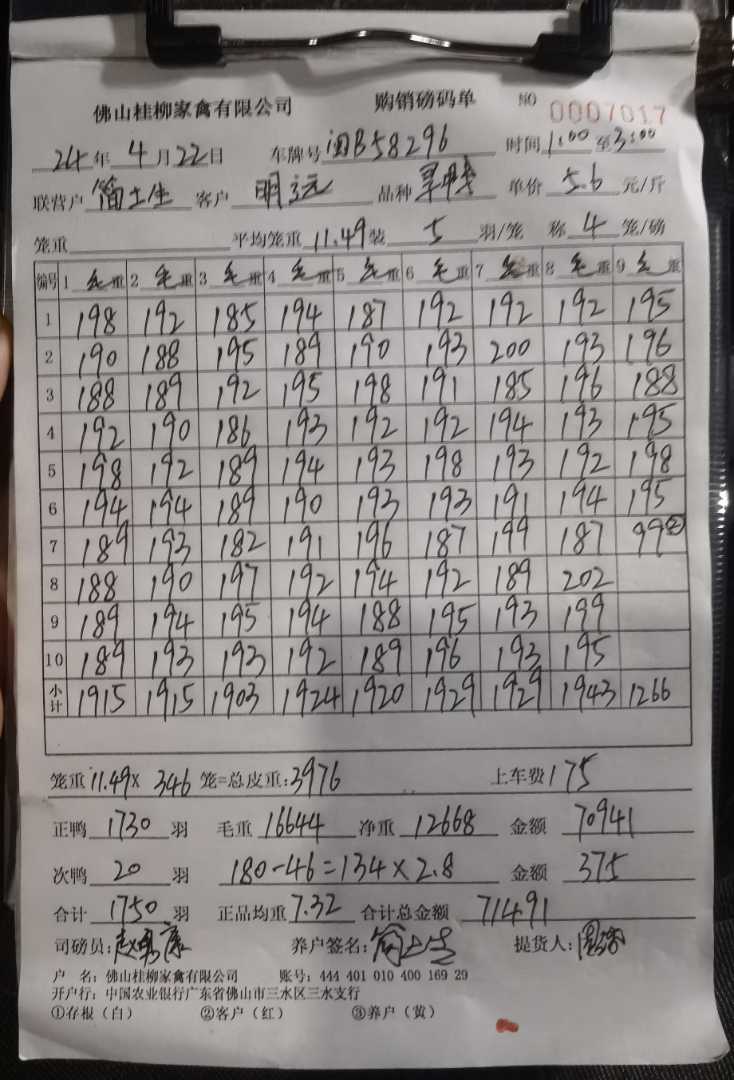 佛山桂柳家禽有限公司 购销磅码单 NO 0007017
24年 4月22日 车牌号 闽B58296 时间1:00至3:00
联营户 简士生 客户 明远 品种 旱鸭 单价 5.6 元/斤
笼重 平均笼重 11.49 装 5 羽/笼 称 4 笼/磅
编号 1 毛重 2 毛重 3 毛重 4 毛重 5 毛重 6 毛重 7 毛重 8 毛重 9 毛重
1 198 192 185 194 187 192 192 192 195
2 190 188 195 189 190 193 200 193 196
3 188 189 192 195 198 191 185 196 188
4 192 190 186 193 192 192 194 193 195
5 198 192 189 194 193 198 193 192 198
6 194 194 189 190 193 193 191 194 195
7 189 193 182 191 196 187 199 187 99②
8 188 190 197 192 194 192 189 202
9 189 194 195 194 188 195 193 199
10 189 193 193 192 189 196 193 195
小计 1915 1915 1903 1924 1920 1929 1929 1943 1266
笼重 11.49× 346 笼=总皮重:3976 上车费175
正鸭 1730 羽 毛重 16644 净重 12668 金额 70941
次鸭 20 羽 180-46=134×2.8 金额 375
合计 1750 羽 正品均重 7.32 合计总金额 71491
司磅员: 养户签名: 提货人:
户 名:佛山桂柳家禽有限公司 账号:444 401 010 400 169 29
开户行:中国农业银行广东省佛山市三水区三水支行
①存根(白) ②客户(红) ③养户(黄)